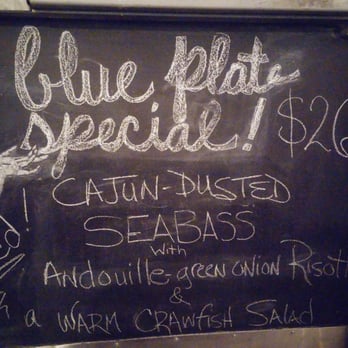 blue plate
special! $26
CAJUN-DUSTED
SEABASS
with
Andouille-green onion Risot
&
a WARM CRAWFISH SALAD